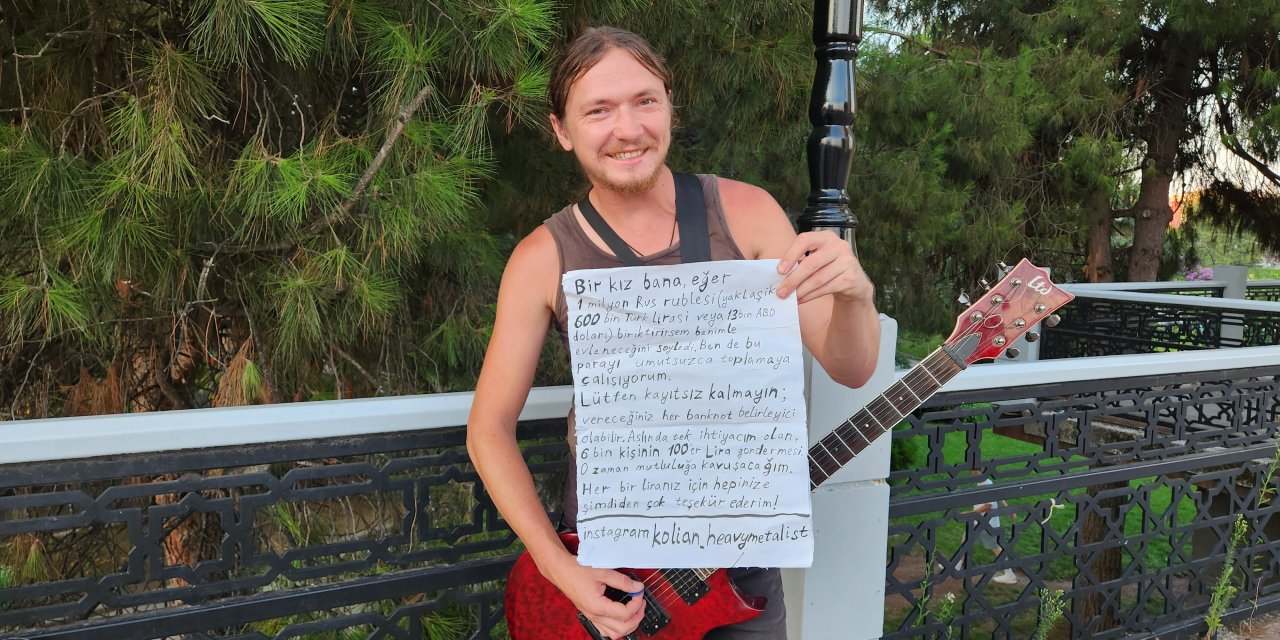 Bir kız bana, eğer
1 milyon Rus rublesi (yaklaşık
600 bin Türk lirası veya 13 bin ABD
doları) biriktirirsem benimle
evleneceğini söyledi. Ben de bu
parayı umutsuzca toplamaya
çalışıyorum.
Lütfen kayıtsız kalmayın;
vereceğiniz her banknot belirleyici
olabilir. Aslında tek ihtiyacım olan,
6 bin kişinin 100er Lira göndermesi.
O zaman mutluluğa kavuşacağım.
Her bir liranız için hepinize
şimdiden çok teşekür ederim!
instagram kolian_heavymetalist
Ltd